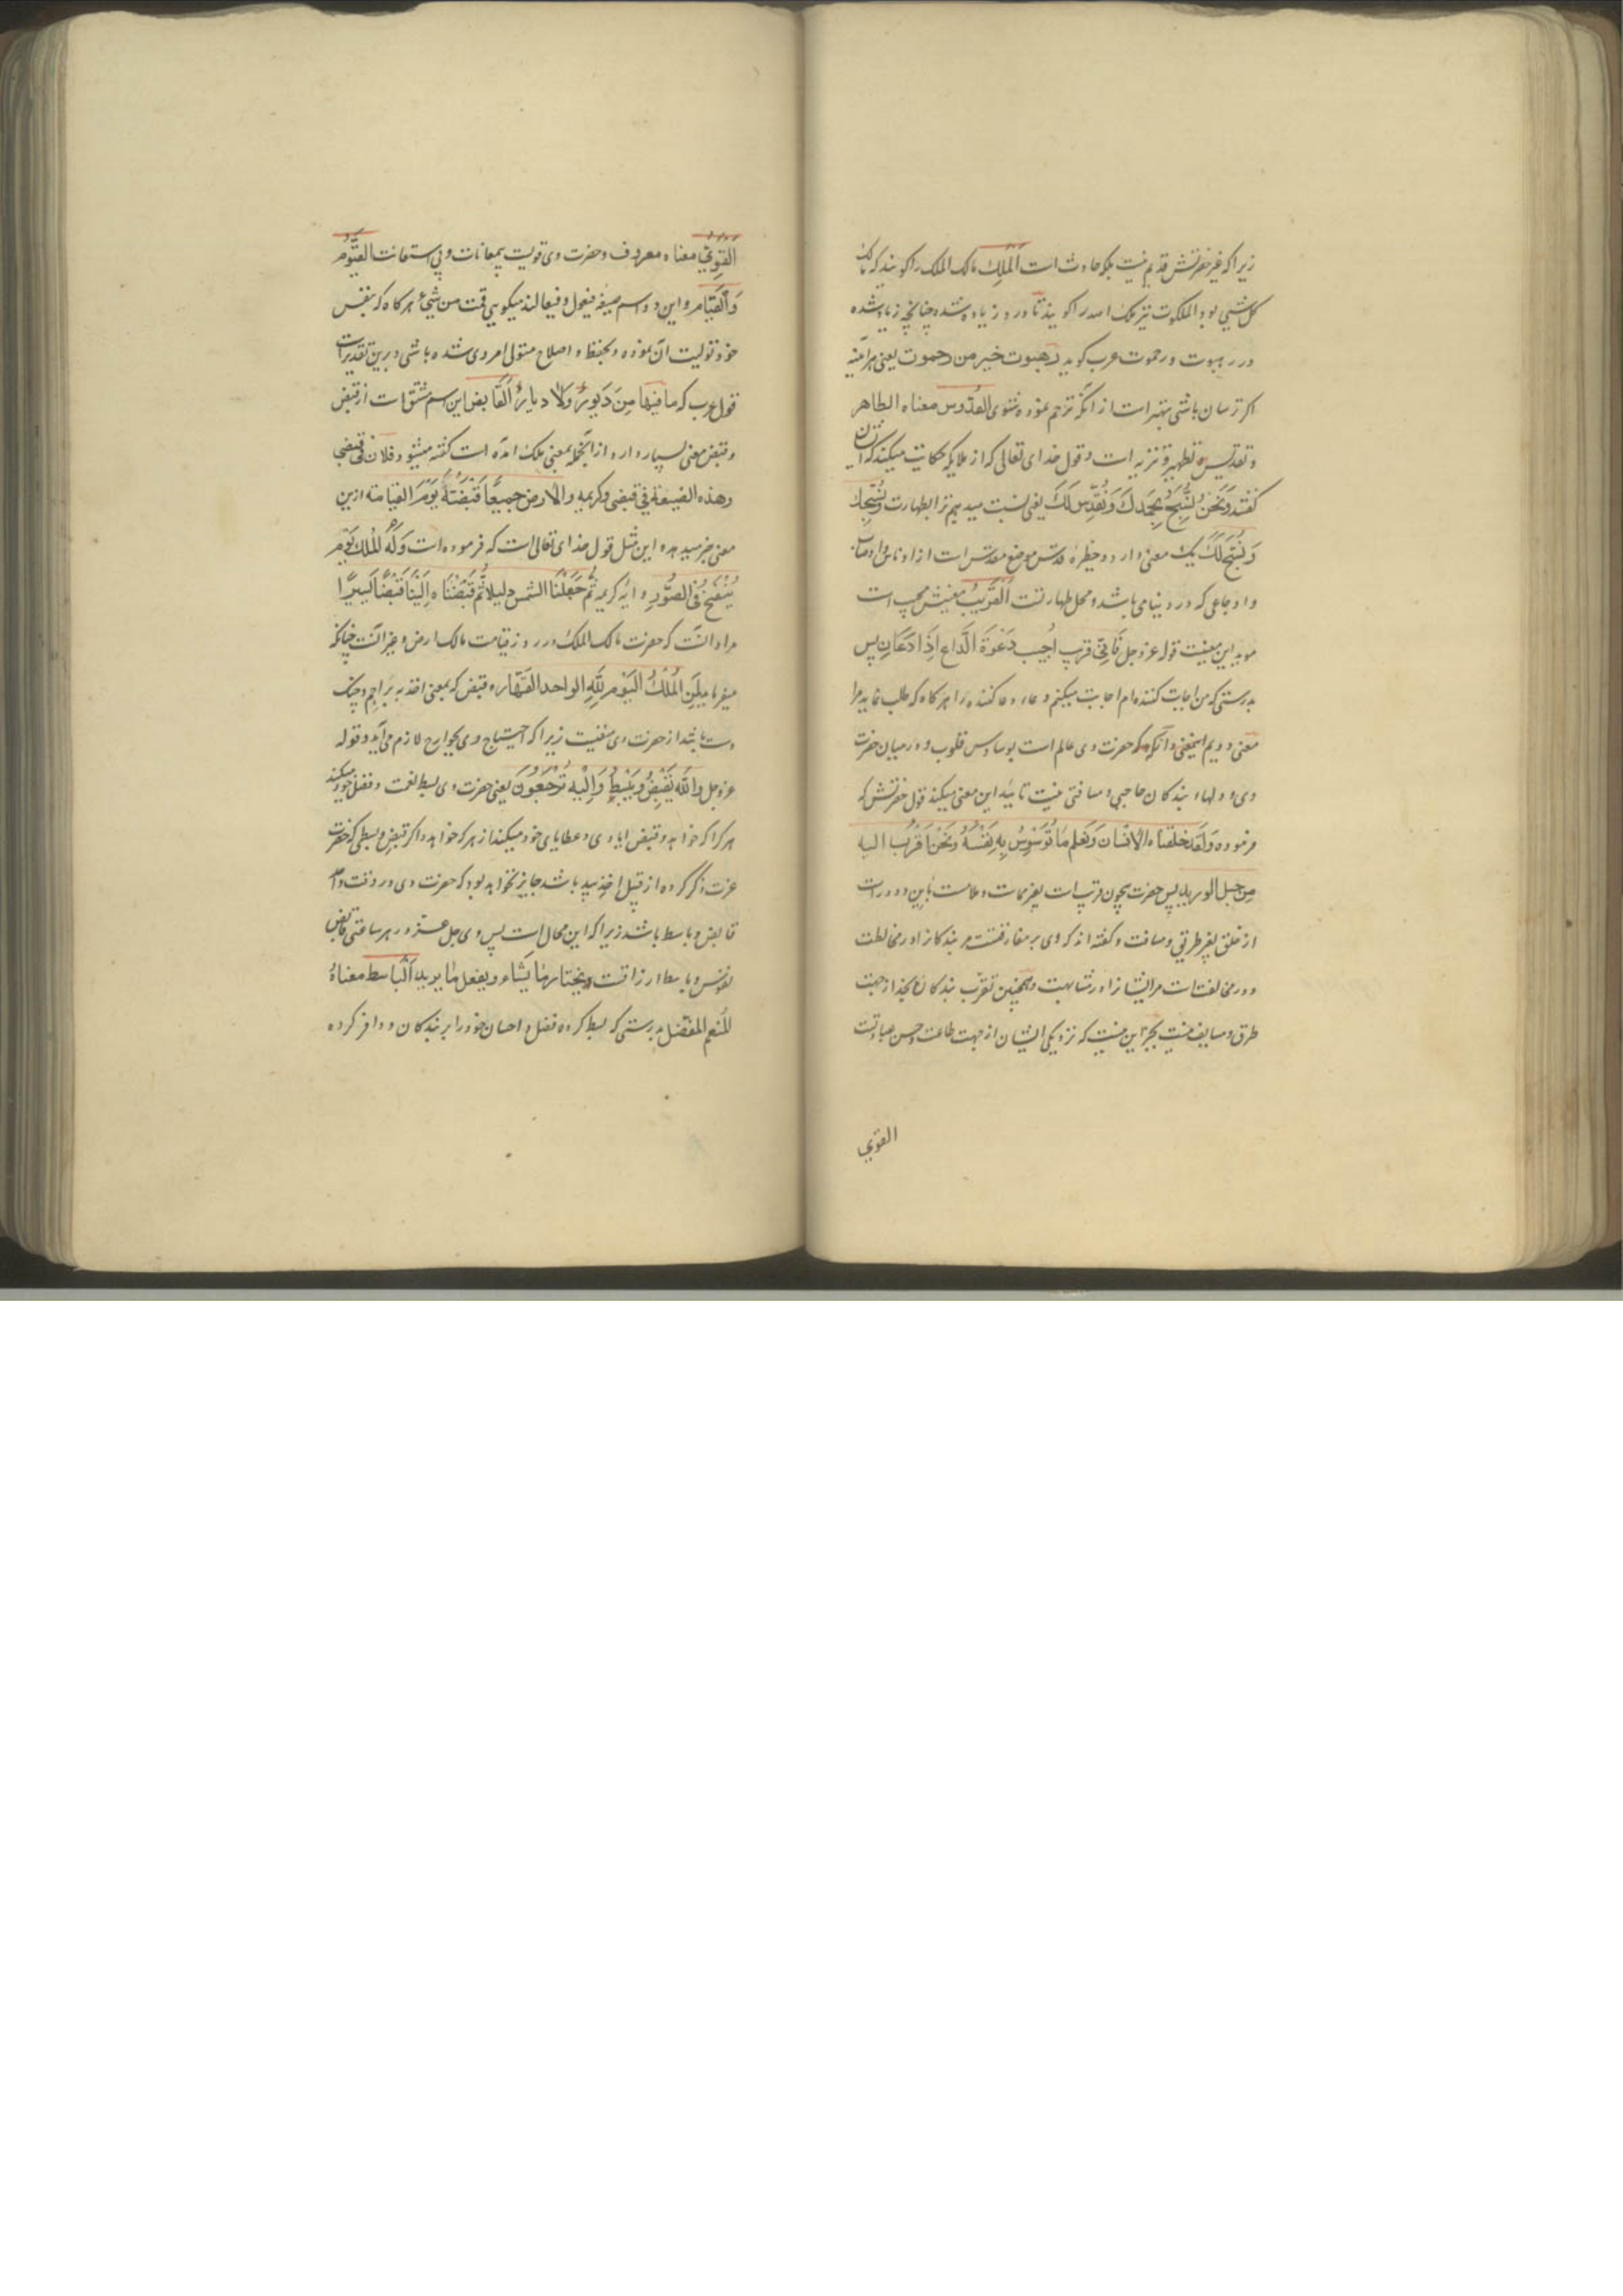 زیرا که غیر حضرتش قدیم نیست بلکه حادث است المَلِكُ مالک الملک را کویند که مالک
کل شیی بود الملکوت نیز ملک اصدرا کویند تا در و زیاده شده چنانچه زیاد شده
در رهبوت و رحموت عرب کوید رهبوت خیر من رحموت یعنی هر آینه
اکر ترسان باشی بهتر است از آنکه ترحم نموده شوی القدّوس معناه الطاهر
و تقدیس و تطهیر و تنزیه است و قول خدای تعالی که از ملایکه حکایت میکند که ایشان
کفتند وَنَحْنُ نُسَبِّحُ بِحَمْدِكَ وَنُقَدِّسُ لَكَ یعنی نسبت میدهیم ترا بطهارت و نُسَبِّحكَ
وَنُسَبِّحُ لَكَ یک معنی دارد و حظیرهٔ قدس موضع مقدس است از ادناس و اوصاب
و اوجاعی که در دنیا می باشد و محل طهارتت القَرِیْبُ معنیش مجیب است
موید این معنیست قوله عز و جل فَاِنّی قریب اُجِیب دَعْوَةَ الدَّاعِ اِذَا دَعَانِ پس
بدرستی که من اجابت کننده ام اجابت میکنم دعاء دعا کننده را هر کاه که طلب نماید مرا
معنی دویم اینمعنی و آنکه حضرت وی عالم است بوساوس قلوب و در میان حضرت
وی و دلهاء بندکان حاجبی و مسافتی نیست تایید این معنی میکند قول حضرتش که
فرموده وَلَقَد خلقنا الاِنْسَان وَنَعلم مَا تُوَسْوِسُ بِهِ نَفْسُهُ وَنَحْنُ اَقْرَبُ الیه
مِن حبل الورید پس حضرت بیچون قریب است بغیر مماست و علامت باین و دور است
از خلق بغیر طریقی و مسافت و کفته اند که وی بر مفارقتست مر بندکانرا در مخالطت
و در مخالفتست مر ایشانرا در مشابهت و همچنین تقرب بندکان بخدا از جهت
طرق و مسایف نیست بجز این نیست که نزدیکی ایشان از جهت طاعت و حسن عبادتست
القوی
القَوِیُّ معناه معروف و حضرت وی قویست بیمعانات و بی استعانت القَیُّوْمُ
وَالْقَیَّام و این دو اسم صیغهٔ فیعول و فیعالند میکویی قمت من شیئ هر کاه که بنفس
خود تولیت آن نموده و بحفظ و اصلاح متولی امر وی شده باشی و برین تقدیر است
قول عرب که ما فِیْهَا مِنْ دَیُّورٍ وَلَا دیارٍ اَلقَابض این اسم مشتق است از قبض
و قبض معنی بسیار دارد از آنجمله بمعنی ملک آمده است کفته میشود فلان فی قبضی
وهذه الضیعة فی قبضی و کریمه والارض جمیعًا قَبْضَتُهُ یَوْمَ القیامة ازین
معنی خبر میدهد و این مثل قول خدای تعالی است که فرموده است وَلَهُ المُلْكُ یَوْمَ
یُنْفَخُ فی الصُّوْرِ و آیه کریمه ثُمَّ جَعَلْنَا الشمس دلیلا ثُمَّ قَبَضْنَاهُ اِلَیْنَا قَبْضًا یَسِیرًا
مراد آنست که حضرت مالک الملک در روز قیامت مالک ارض و غیر آنست چنانکه
میفرماید لِمَنِ المُلْكُ الْیَوْمَ لِلّهِ الواحد القَهَّار و قبض که بمعنی اخذ به براجم و چنک
دست باشد از حضرت وی منفیست زیرا که احتیاج وی بجوارح لازم می آید و قوله
عز و جل واللّه یَقْبِضُ وَیَبْسُطُ وَاِلَیْهِ تُرْجَعُوْنَ یعنی حضرت وی بسط نعمت و فضل خود میکند
هر کرا که خواهد و قبض ایادی و عطایای خود میکند از هر که خواهد و اکر قبض و بسطی که حضرت
عزت ذکر کرده از قبیل اخذ بید باشد جایز نخواهد بود که حضرت وی در وقت واحد
قابض و باسط باشد زیرا که این محال است پس وی جل عزه در هر ساعتی قابض
نفوس و باسط ارزاقست ویختار ما یَشاء ویفعل ما یرید اَلْبَاسط معناهُ
المُنعم المفضل بدرستی که بسط کرده فضل و احسان خود را بر بندکان و وافر کرده